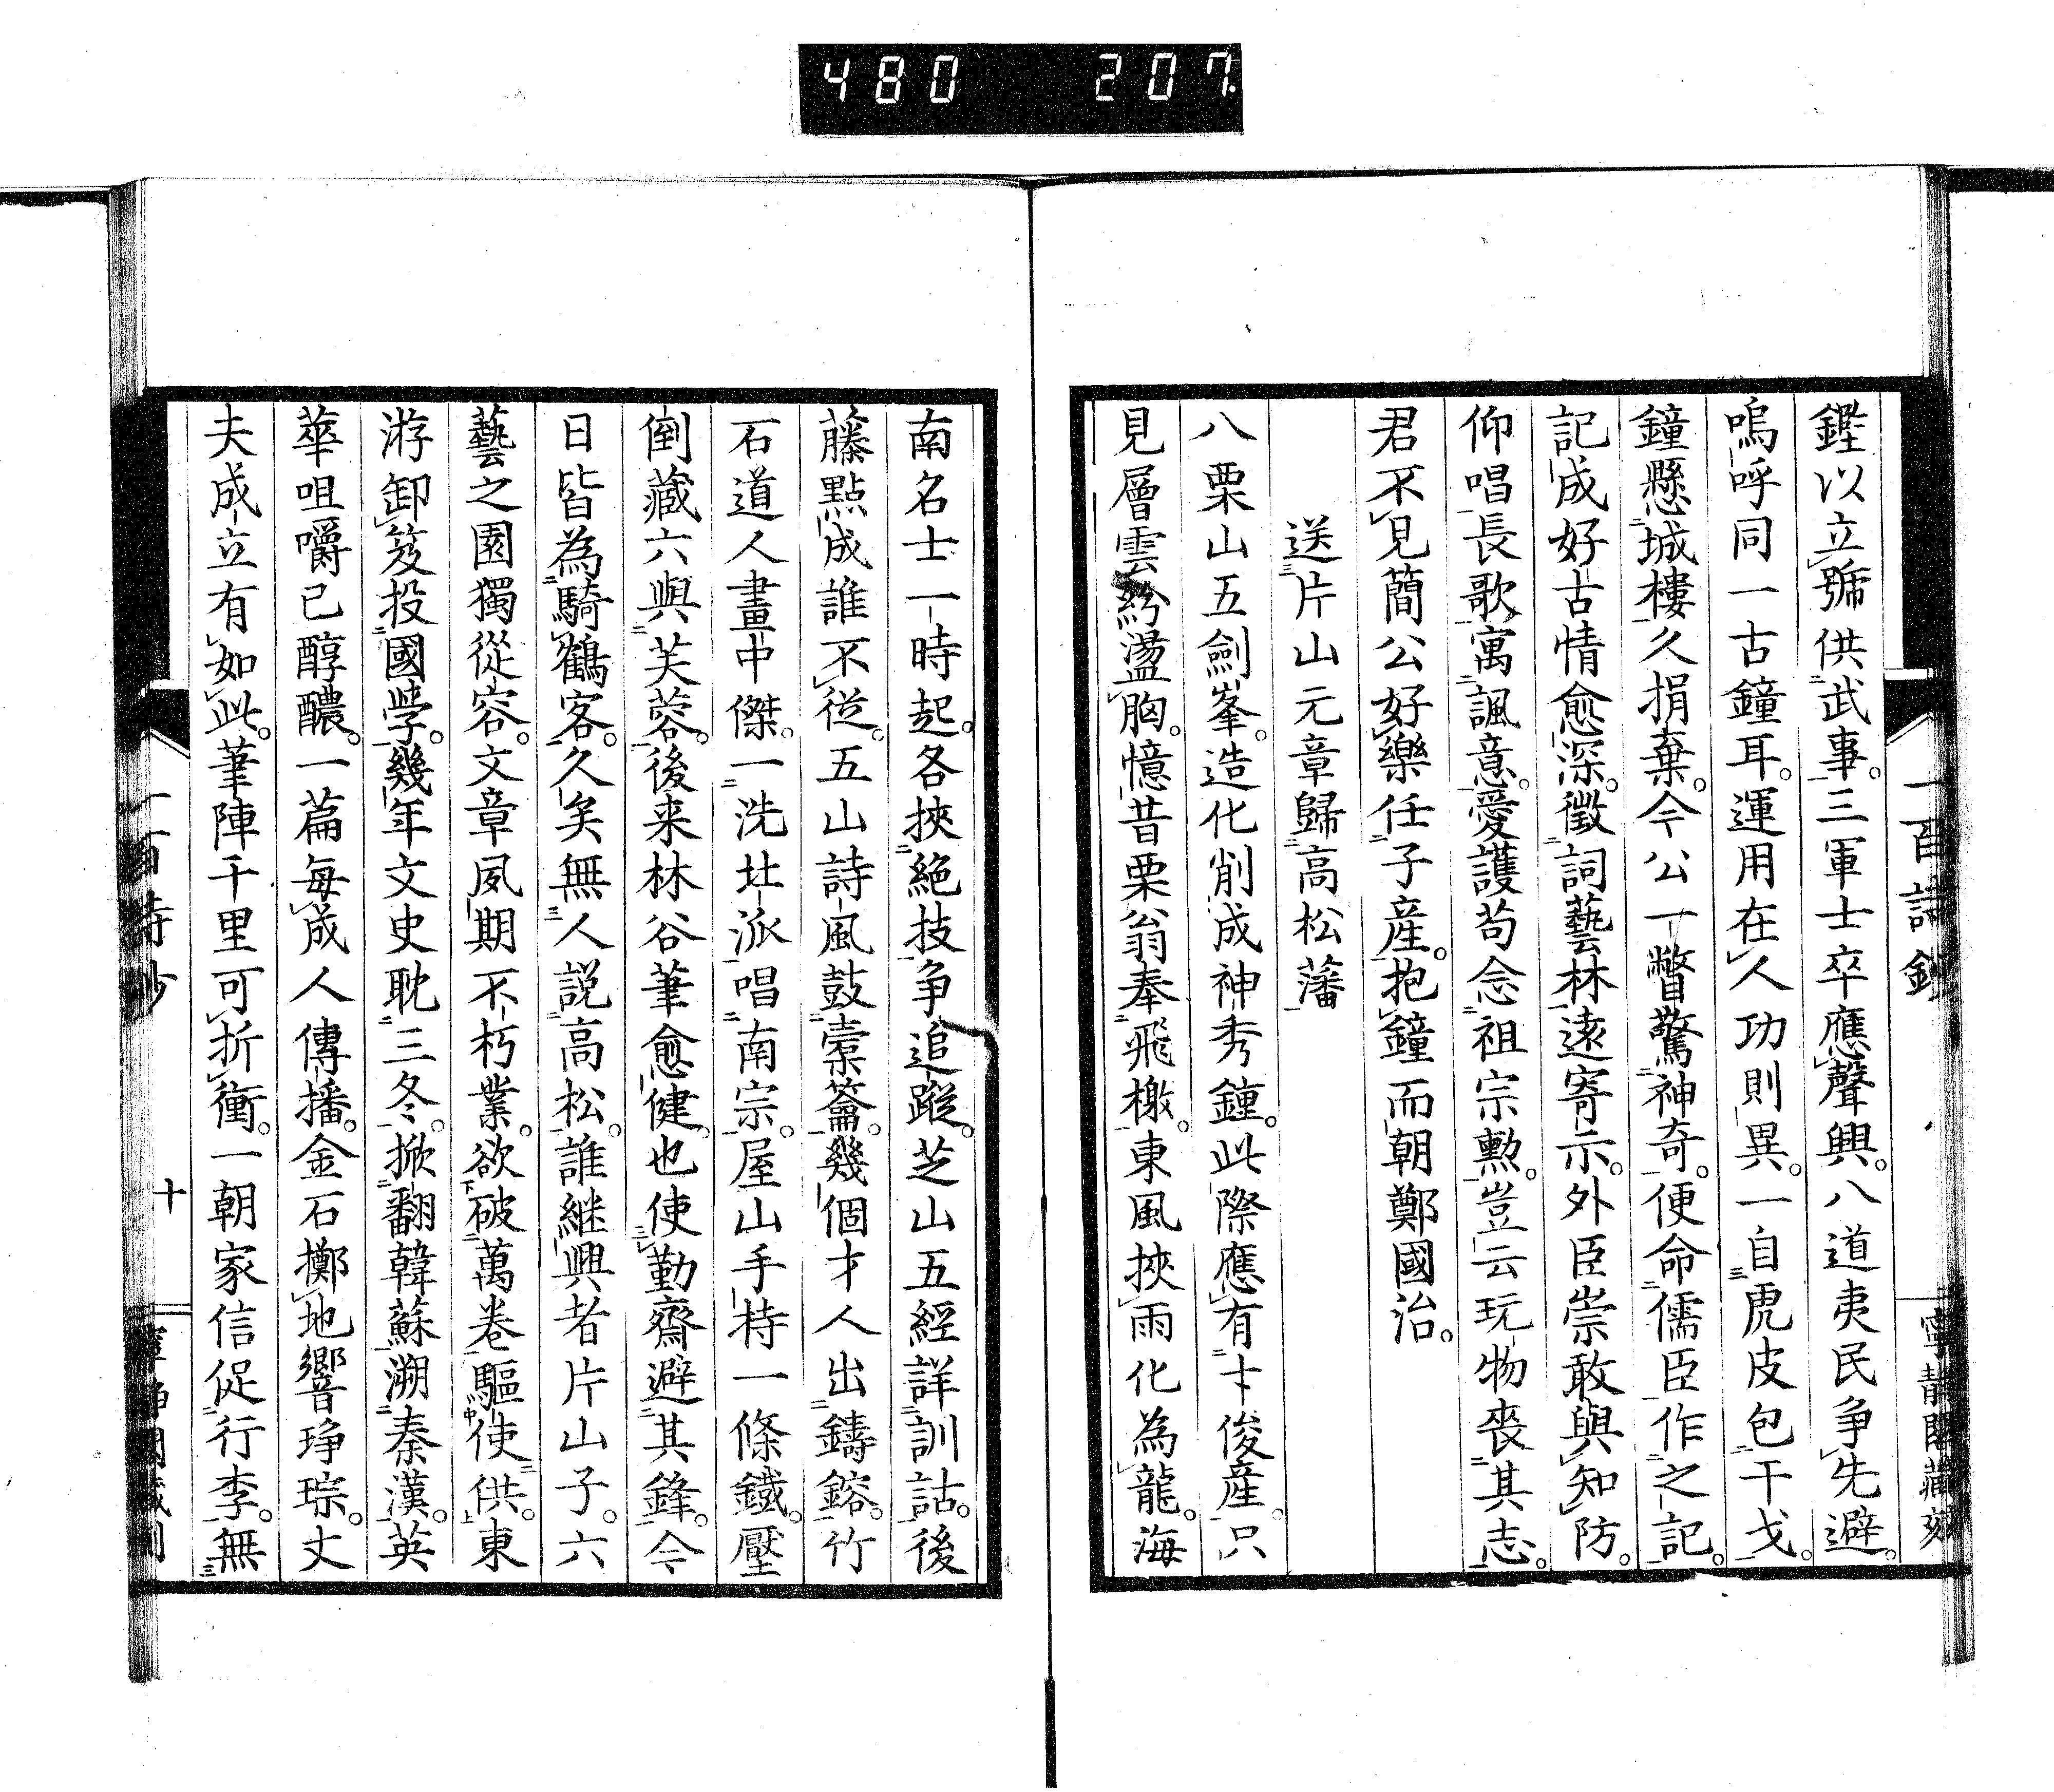 480 207.
一百詩鈔
寧静閣藏刻
鏗以立號供武事。三軍士卒應聲興。八道夷民争先避。
嗚呼同一古鐘耳。運用在人功則異。一自虎皮包干戈。
鐘懸城樓久捐棄。今公一瞥驚神奇。便命儒臣作之記。
記成好古情愈深。徵詞藝林遠寄示。外臣崇敢與知防。
仰唱長歌寓諷意。愛護苟念祖宗勲。豈云玩物喪其志。
君不見簡公好樂任子産。抱鐘而朝鄭國治。
送片山元章歸高松藩
八栗山五劍峯。造化削成神秀鍾。此際應有卞俊産。只
見層雲紛盪胸。憶昔栗翁奉飛檄。東風挾雨化為龍。海
南名士一時起。各挾絶技争追蹤。芝山五經詳訓詁。後
藤點成誰不從。五山詩風鼓橐籥。幾個才人出鑄鎔。竹
石道人畫中傑。一洗北派唱南宗。屋山手持一條鐵。壓
倒藏六與芙蓉。後来林谷筆愈健。也使勤齋避其鋒。今
日皆為騎鶴客。久矣無人説高松。誰継興者片山子。六
藝之園獨從容。文章夙期不朽業。欲破萬巻驅使供。東
游卸笈投國學。幾年文史耽三冬。掀翻韓蘇溯秦漢。英
華咀嚼已醇醲。一篇毎成人傳播。金石擲地響琤琮。丈
夫成立有如此。筆陣千里可折衝。一朝家信促行李。無
十